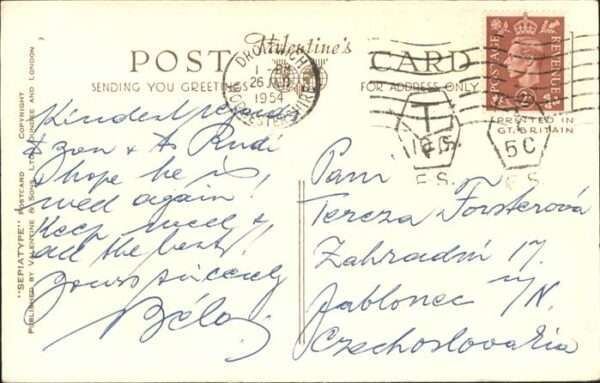 POST CARD
Valentine's
SENDING YOU GREETINGS
FOR ADDRESS ONLY
DROITWICH
26 JUL
1954
WORCESTERSHIRE
POSTAGE REVENUE
PRINTED IN
GT. BRITAIN
T
10 C.
F.S.
5C
F.S.
Kindest regards
& to Rudi
I hope he is
well again!
Keep well &
all the best!
Yours sincerely
Béla
Paní
Tereza Försterová
Zahradní 17.
Jablonec n/N.
Czechoslovakia
"SEPIATYPE" POSTCARD COPYRIGHT
PUBLISHED BY VALENTINE & SONS, LTD., DUNDEE AND LONDON